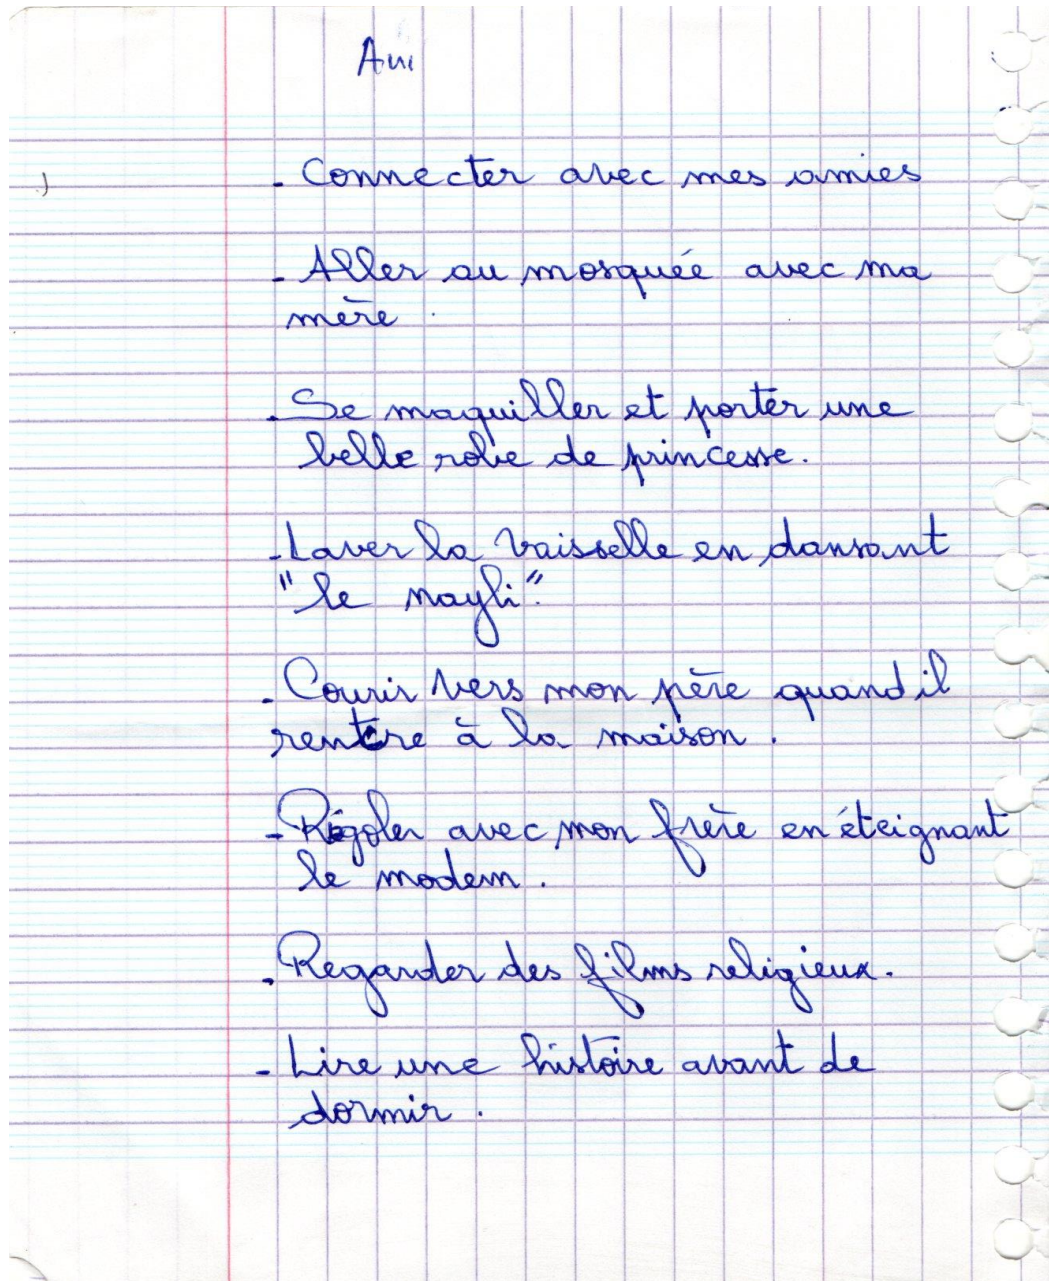 - Connecter avec mes amies
- Aller au mosquée avec ma
mère.
- Se maquiller et porter une
belle robe de princesse.
- Laver la vaisselle en dansant
"le nayli".
- Courir vers mon père quand il
rentre à la maison.
- Rigoler avec mon frère en éteignant
le modem.
- Regarder des films religieux.
- Lire une histoire avant de
dormir.